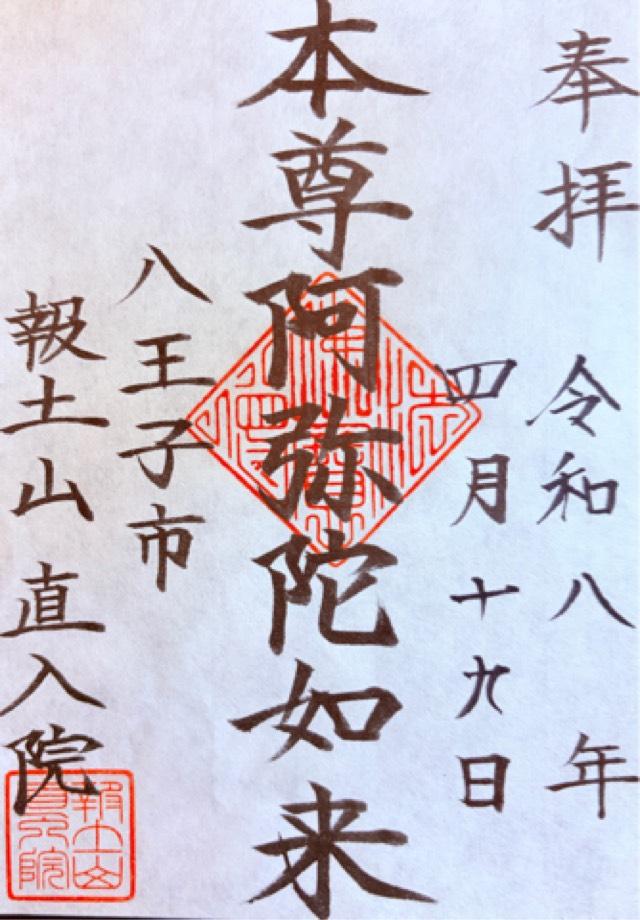 奉拝 令和八年
四月十九日
本尊阿弥陀如来
八王子市
報土山 直入院
報土山
直入院